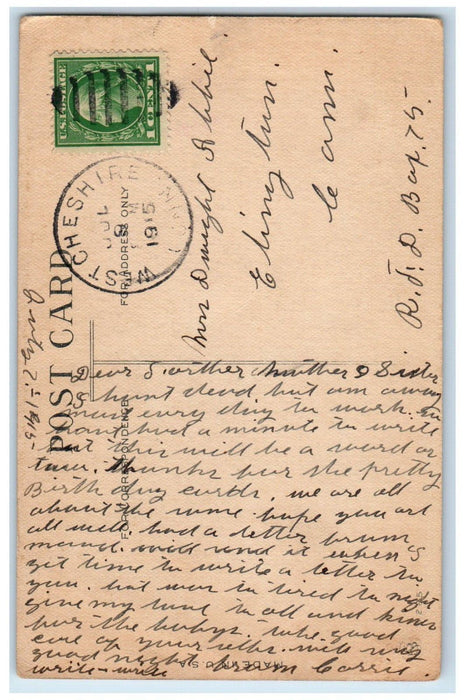 U.S. POSTAGE
1 CENT 1
WEST CHESHIRE CONN.
JUL
9
M
1915
POST CARD
FOR ADDRESS ONLY
FOR CORRESPONDENCE
MADE IN U.S.A.
Mrs Dwight
R. F. D. Box 75.
July 1915
Dear Farther Muther & Sister
I haint dead but am away
every day to work.
haint had a minute to write
but this will be a word or
two. thanks for the pretty
Birth day cards. we are all
about the same hope you are
all well. had a letter from
maud. will send it when I
get time to write a letter to
you. but am to tired to night
give my love to all and kisses
for the babys. take good
care of your selfs. will say
good night from Carrie
write - write